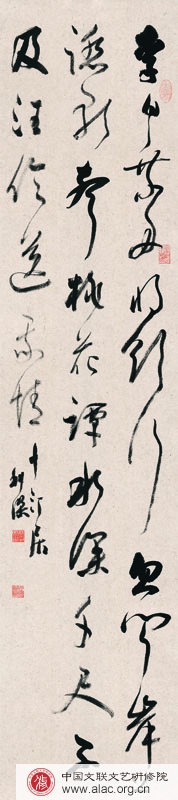 李白乘舟將欲行忽聞岸
踏歌聲桃花潭水深千尺不
及汪倫送我情
中国文联文艺研修院
www.alac.org.cn